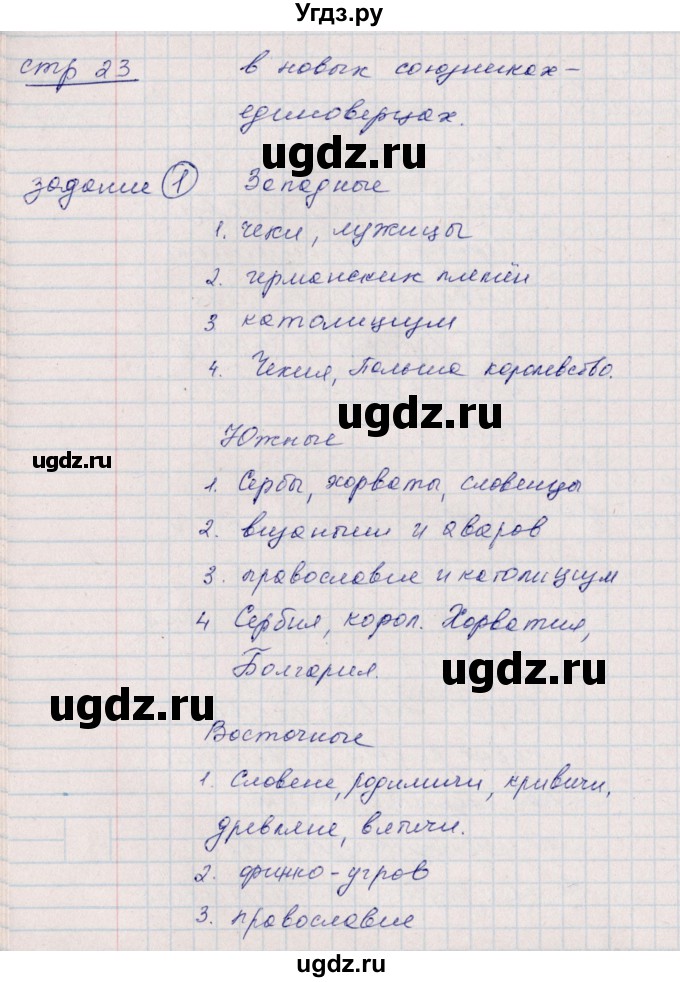 Угдз.ру
стр 23
в новых союзниках-
единоверцах.
ugdz.ru
задание 1 Западные
1. чехи, лужицы
2. германских племён
3 католицизм
4. Чехия, Польша королевство.
ugdz.ru
Южные
ugdz.ru
1. Сербы, хорваты, словенцы
2. византии и аваров
3. православие и католицизм
4 Сербия, корол. Хорватия,
Болгария.
ugdz.ru
ugdz.ru
Восточные
1. Словене, родимичи, кривичи,
древляне, вятичи.
2. финно-угров
3. православие
ugdz.ru